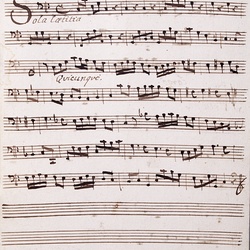 Sola lætitia
Quicunque.